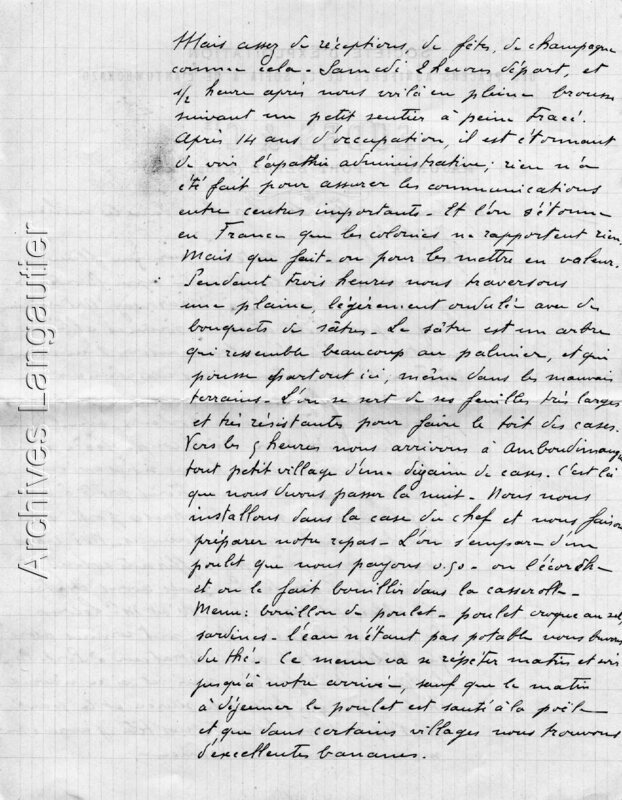 Mais assez de réceptions, de fêtes, de champagne
comme cela. Samedi 2 heures départ, et
1/2 heure après nous voilà en pleine brousse
suivant un petit sentier à peine tracé.
Après 14 ans d'occupation, il est étonnant
de voir l'apathie administrative; rien n'a
été fait pour assurer les communications
entre centres importants. Et l'on s'étonne
en France que les colonies ne rapportent rien.
Mais que fait-on pour les mettre en valeur.
Pendant trois heures nous traversons
une plaine, légèrement ondulée avec des
bouquets de sâtres. Le sâtre est un arbre
qui ressemble beaucoup au palmier, et qui
pousse partout ici, même dans les mauvais
terrains. L'on se sert de ses feuilles très larges
et très résistantes pour faire le toit des cases.
Vers les 5 heures nous arrivons à
tout petit village d'une dizaine de cases. C'est là
que nous devons passer la nuit. Nous nous
installons dans la case du chef et nous faisons
préparer notre repas. L'on s'empare d'un
poulet que nous payons 0.50 - on
et on le fait bouillir dans la casserolle.
Menu: bouillon de poulet - poulet croque au sel,
sardines. l'eau n'étant pas potable nous buvons
du thé. Ce menu va se répéter matin et soir
jusqu'à notre arrivée, sauf que le matin
à déjeuner le poulet est sauté à la poêle
et que dans certains villages nous trouvons
d'excellentes bananes.
Archives Langautier